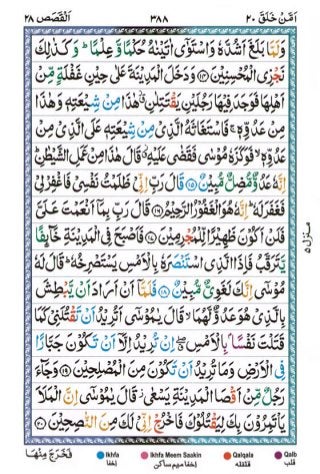 اَمَّنْ خَلَقَ ٢٠ ٣٨٨ اَلْقَصَص ٢٨
وَلَمَّا بَلَغَ اَشُدَّهٗ وَاسْتَوٰٓى اٰتَيْنٰهُ حُكْمًا وَّ عِلْمًا ؕ وَ كَذٰلِكَ
نَجْزِى الْمُحْسِنِيْنَ ﴿۱۴﴾ وَدَخَلَ الْمَدِيْنَةَ عَلٰى حِيْنِ غَفْلَةٍ مِّنْ
اَهْلِهَا فَوَجَدَ فِيْهَا رَجُلَيْنِ يَقْتَتِلٰنِ ۫ هٰذَا مِنْ شِيْعَتِهٖ وَ هٰذَا
مِنْ عَدُوِّهٖ ۚ فَاسْتَغَاثَهُ الَّذِىْ مِنْ شِيْعَتِهٖ عَلَى الَّذِىْ مِنْ
عَدُوِّهٖ ۙ فَوَكَزَهٗ مُوْسٰى فَقَضٰى عَلَيْهِ ۫ قَالَ هٰذَا مِنْ عَمَلِ الشَّيْطٰنِ ؕ
اِنَّهٗ عَدُوٌّ مُّضِلٌّ مُّبِيْنٌ ﴿۱۵﴾ قَالَ رَبِّ اِنِّىْ ظَلَمْتُ نَفْسِىْ فَاغْفِرْ لِىْ
فَغَفَرَ لَهٗ ؕ اِنَّهٗ هُوَ الْغَفُوْرُ الرَّحِيْمُ ﴿۱۶﴾ قَالَ رَبِّ بِمَاۤ اَنْعَمْتَ عَلَىَّ
فَلَنْ اَكُوْنَ ظَهِيْرًا لِّلْمُجْرِمِيْنَ ﴿۱۷﴾ فَاَصْبَحَ فِى الْمَدِيْنَةِ خَآئِفًا
يَّتَرَقَّبُ فَاِذَا الَّذِى اسْتَنْصَرَهٗ بِالْاَمْسِ يَسْتَصْرِخُهٗ ؕ قَالَ لَهٗ
مُوْسٰٓى اِنَّكَ لَغَوِىٌّ مُّبِيْنٌ ﴿۱۸﴾ فَلَمَّاۤ اَنْ اَرَادَ اَنْ يَّبْطِشَ
بِالَّذِىْ هُوَ عَدُوٌّ لَّهُمَا ۙ قَالَ يٰمُوْسٰٓى اَتُرِيْدُ اَنْ تَقْتُلَنِىْ كَمَا
قَتَلْتَ نَفْسًۢا بِالْاَمْسِ ۖ اِنْ تُرِيْدُ اِلَّاۤ اَنْ تَكُوْنَ جَبَّارًا
فِى الْاَرْضِ وَمَا تُرِيْدُ اَنْ تَكُوْنَ مِنَ الْمُصْلِحِيْنَ ﴿۱۹﴾ وَجَآءَ
رَجُلٌ مِّنْ اَقْصَا الْمَدِيْنَةِ يَسْعٰى ؗ قَالَ يٰمُوْسٰٓى اِنَّ الْمَلَاَ
يَاْتَمِرُوْنَ بِكَ لِيَقْتُلُوْكَ فَاخْرُجْ اِنِّىْ لَكَ مِنَ النّٰصِحِيْنَ ﴿۲۰﴾
منزل ۵
فَخَرَجَ مِنْهَا
Ikhfa اخفا
Ikhfa Meem Saakin اخفا میم ساکن
Qalqala قلقله
Qalb قلب